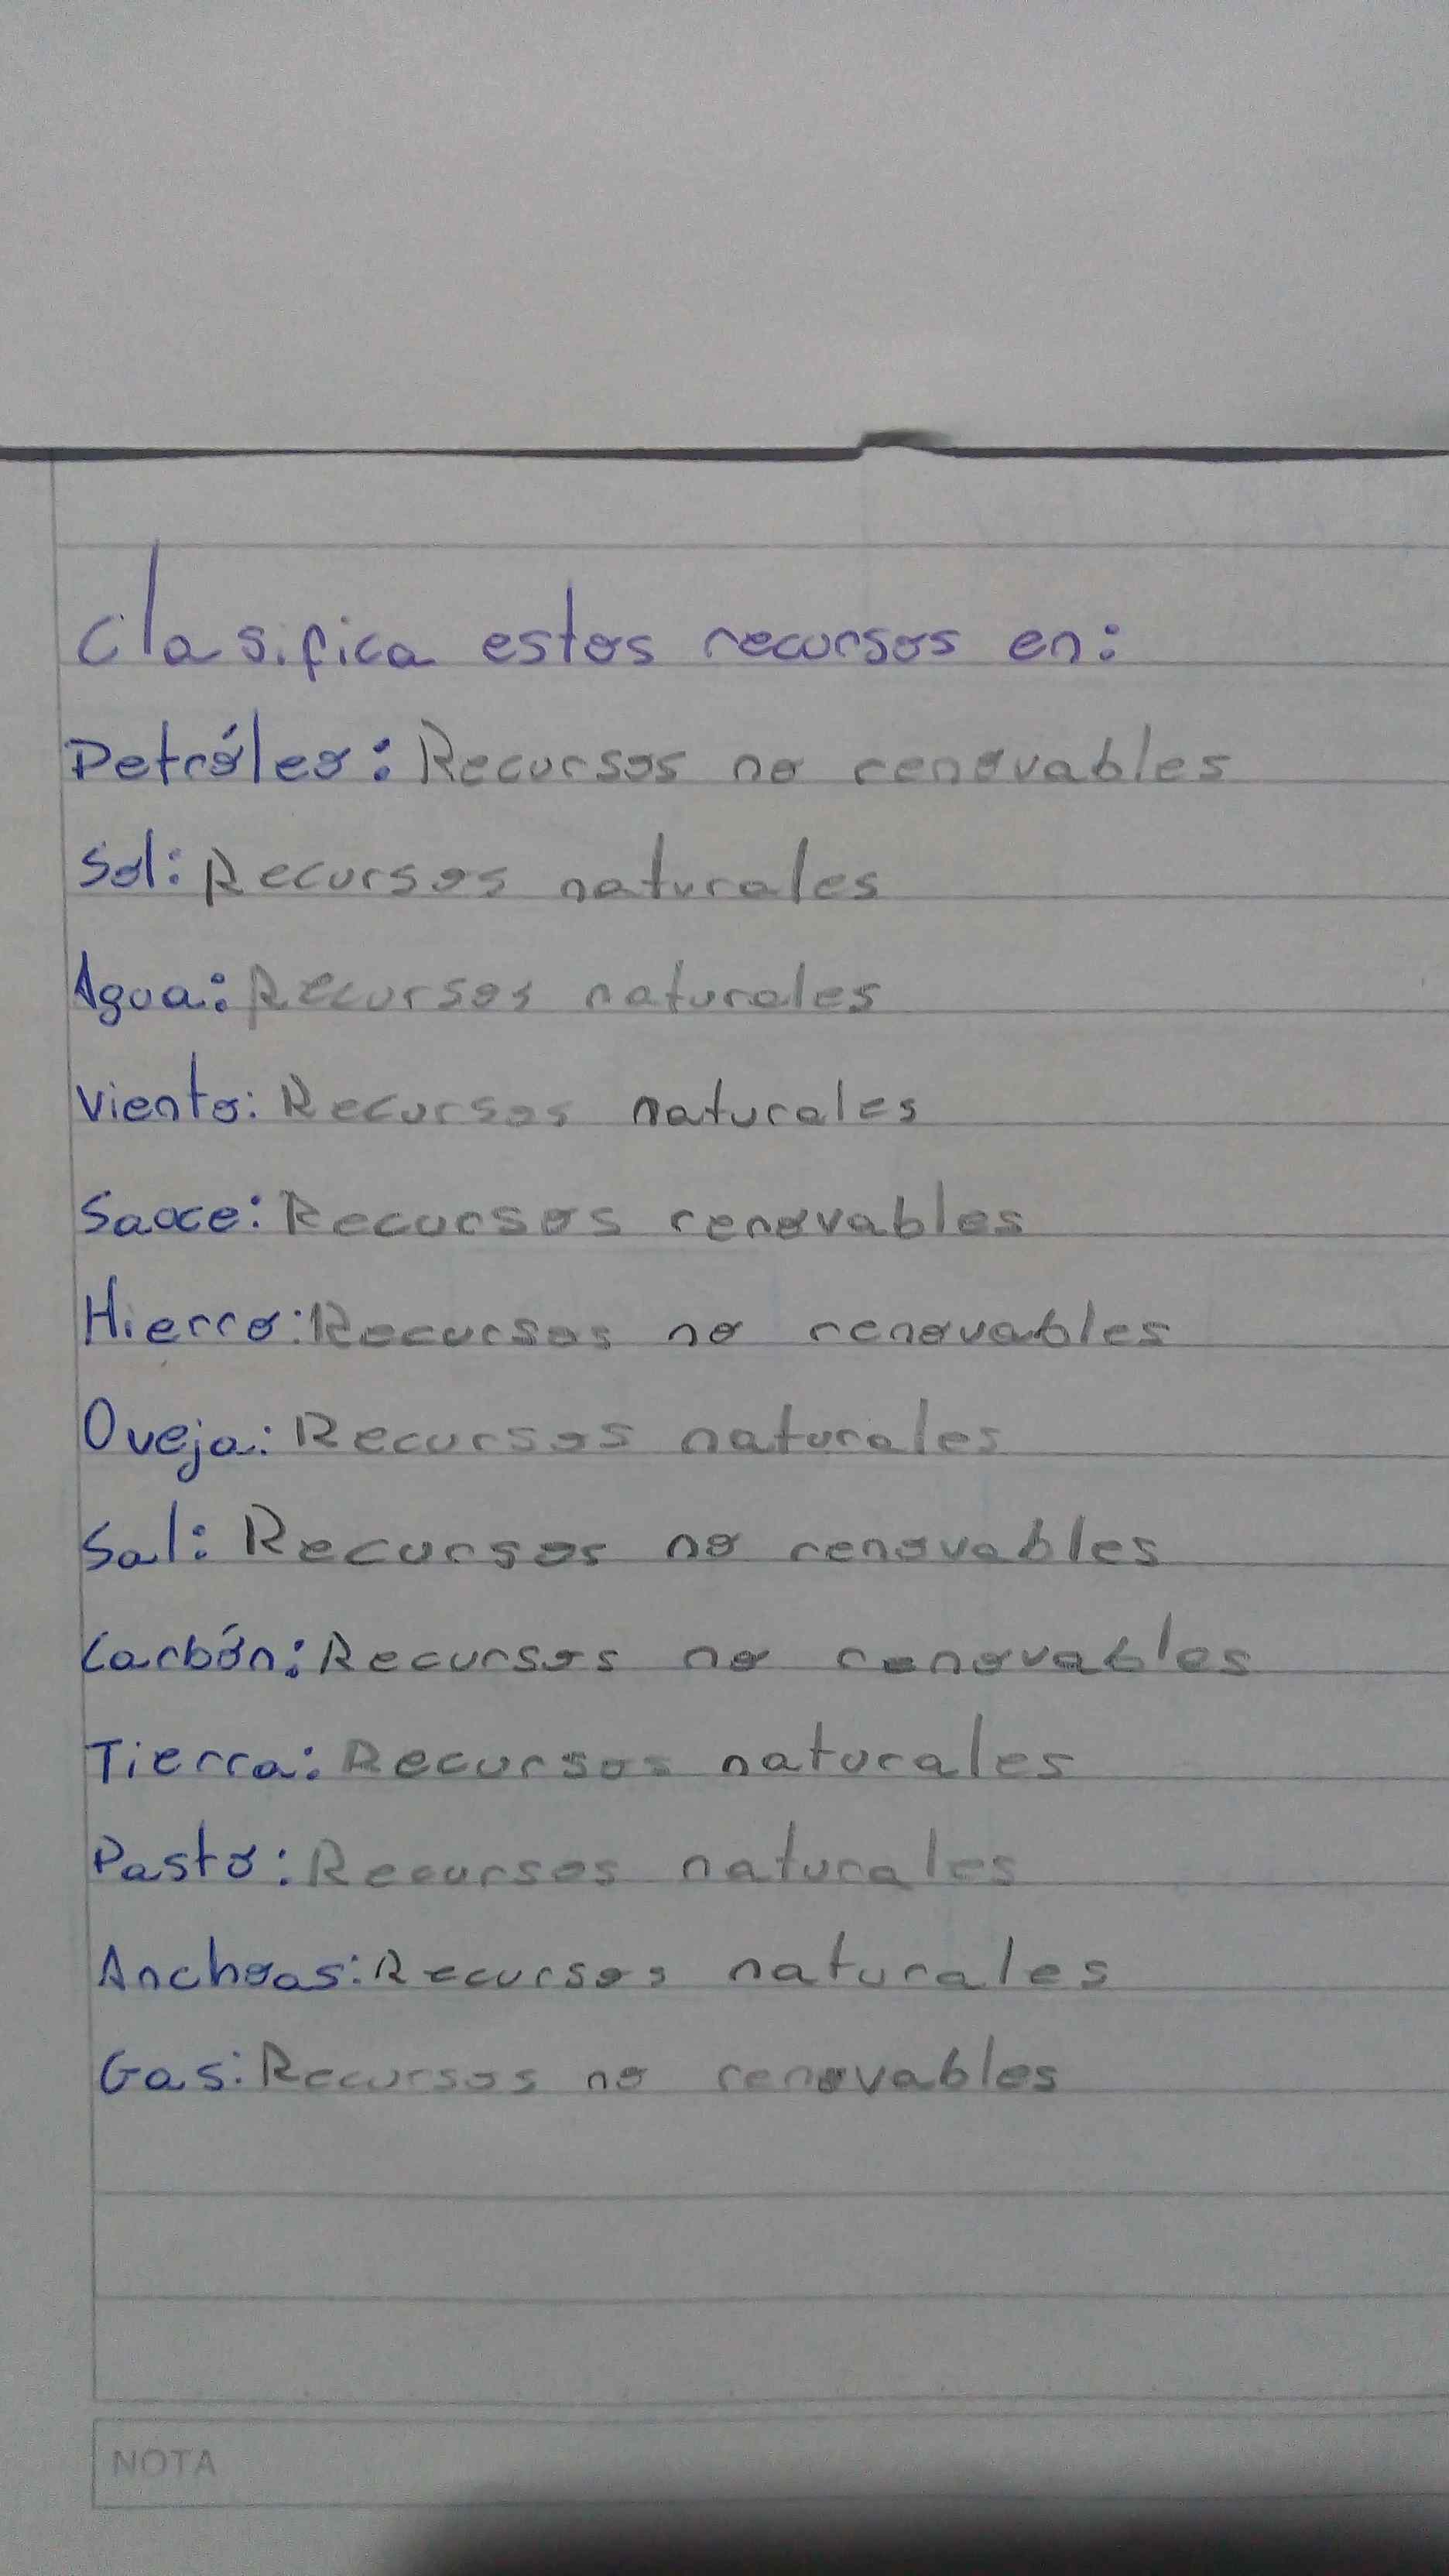 Clasifica estos recursos en:
Petróleo: Recursos no renovables
Sol: Recursos naturales
Agua: Recursos naturales
Viento: Recursos naturales
Sauce: Recursos renovables
Hierro: Recursos no renovables
Oveja: Recursos naturales
Sal: Recursos no renovables
Carbón: Recursos no renovables
Tierra: Recursos naturales
Pasto: Recursos naturales
Anchoas: Recursos naturales
Gas: Recursos no renovables
NOTA